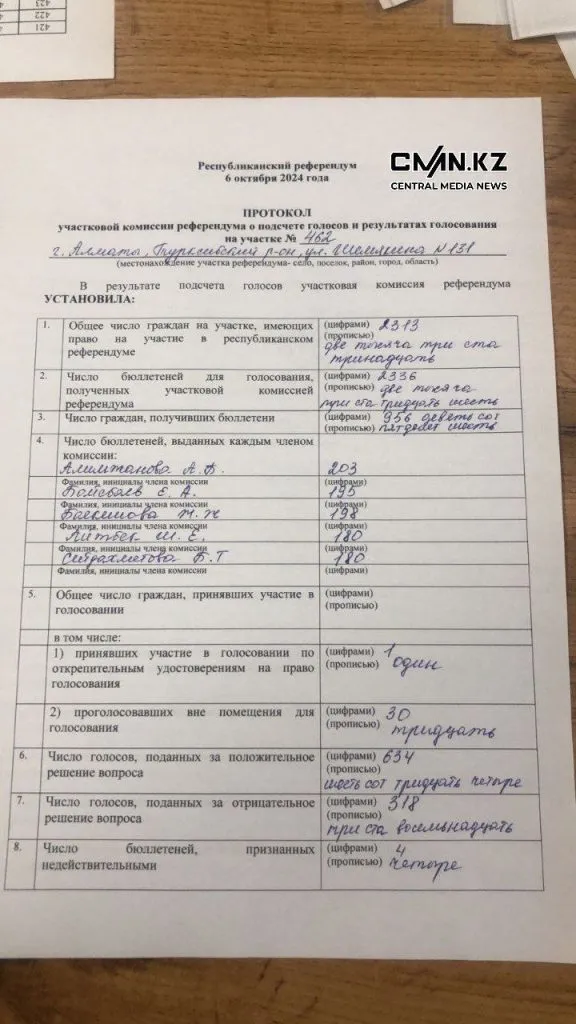 423
422
421
CMN.KZ
CENTRAL MEDIA NEWS
Республиканский референдум
6 октября 2024 года
ПРОТОКОЛ
участковой комиссии референдума о подсчете голосов и результатах голосования
на участке № 462
г. Алматы, Турксибский р-он, ул. Шемякина N 131
(местонахождение участка референдума- село, поселок, район, город, область)
В результате подсчета голосов участковая комиссия референдума
УСТАНОВИЛА:
1. Общее число граждан на участке, имеющих (цифрами) 2313
право на участие в республиканском (прописью)
референдуме две тысяча три ста
тринадцать
2. Число бюллетеней для голосования, (цифрами) 2336
полученных участковой комиссией (прописью) две тысяча
референдума три ста тридцать шесть
3. Число граждан, получивших бюллетени (цифрами) 956 девять сот
(прописью) пятдесят шесть
4. Число бюллетеней, выданных каждым членом
комиссии:
Алимжанова А.В. 203
Фамилия, инициалы члена комиссии (цифрами)
Байсбаев Е. А. 195
Фамилия, инициалы члена комиссии (цифрами)
Ж. Ж 198
Фамилия, инициалы члена комиссии (цифрами)
Ш. Е. 180
Фамилия, инициалы члена комиссии (цифрами)
Сейдахметова Б.Т 180
Фамилия, инициалы члена комиссии (цифрами)
5. Общее число граждан, принявших участие в (цифрами)
голосовании (прописью)
в том числе:
1) принявших участие в голосовании по (цифрами) 1
открепительным удостоверениям на право (прописью) один
голосования
2) проголосовавших вне помещения для (цифрами) 30
голосования (прописью) тридцать
6. Число голосов, поданных за положительное (цифрами) 634
решение вопроса (прописью)
шесть сот тридцать четыре
7. Число голосов, поданных за отрицательное (цифрами) 318
решение вопроса (прописью)
три ста восемьнадцать
8. Число бюллетеней, признанных (цифрами) 4
недействительными (прописью) четыре